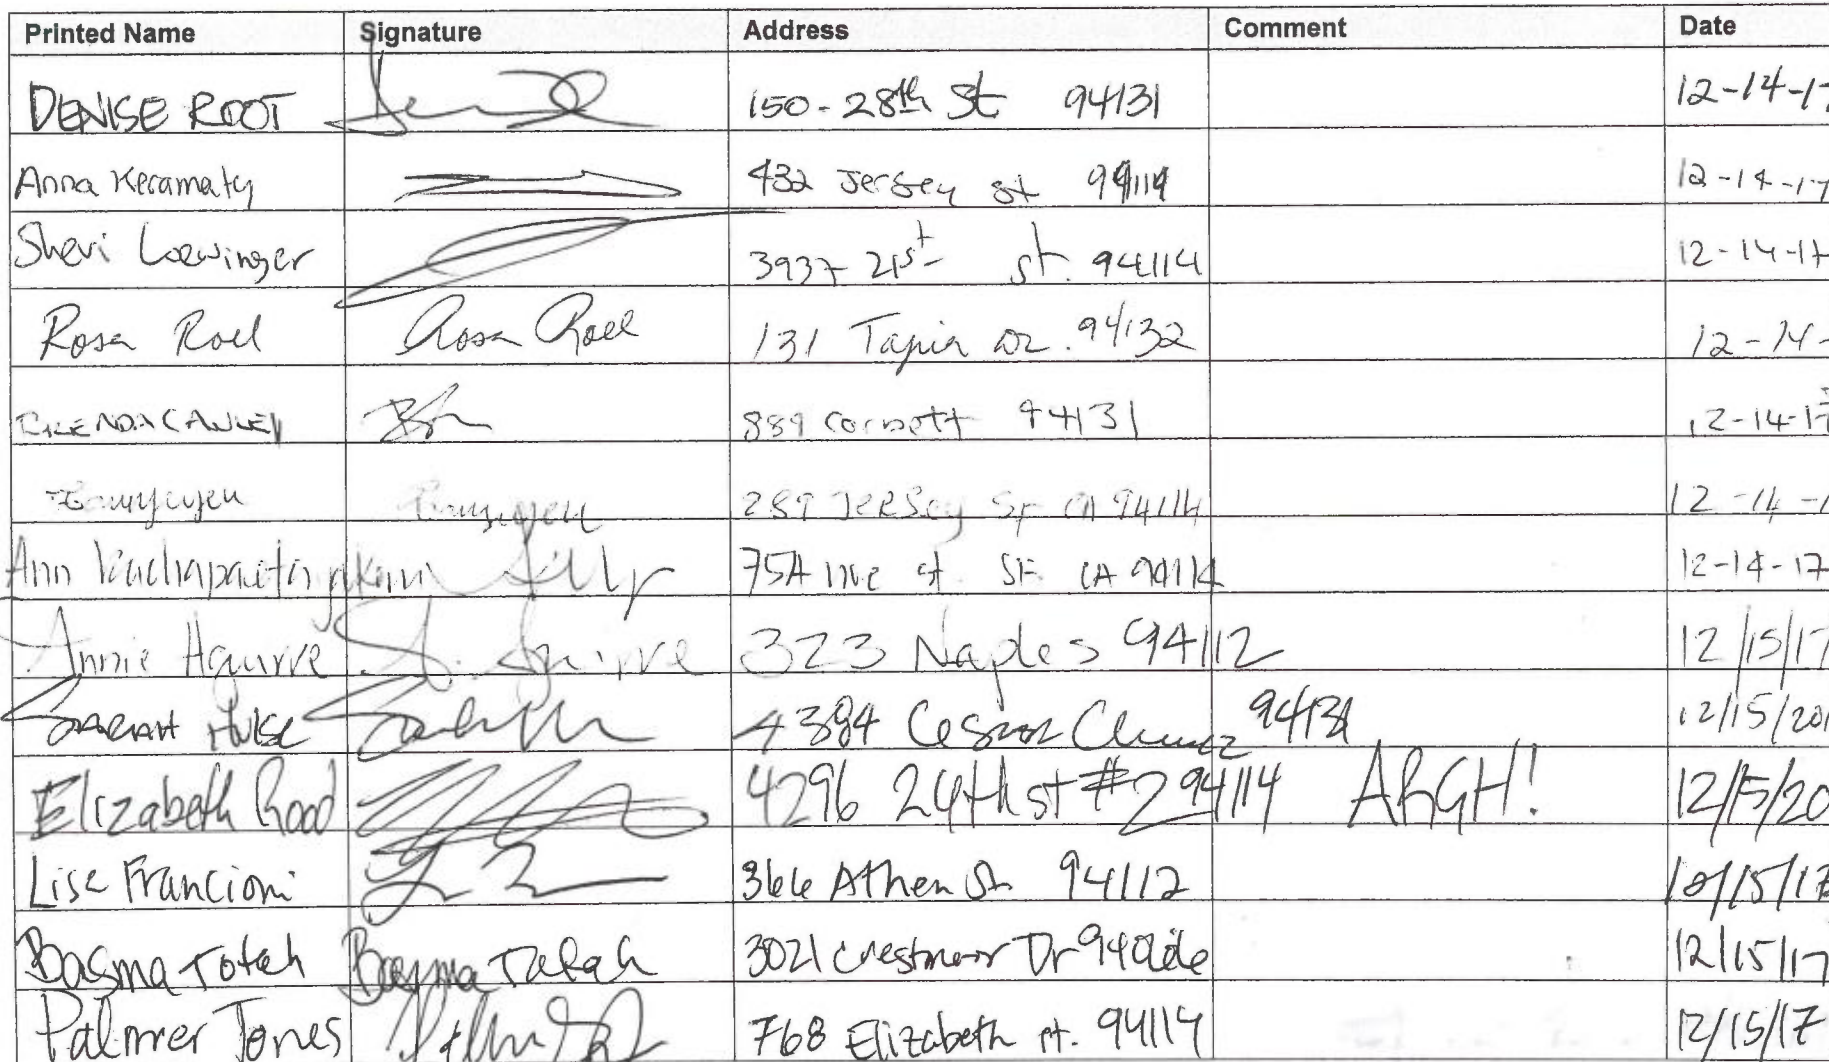 Printed Name Signature Address Comment Date
DENISE ROOT 150-28th St 94131 12-14-17
Anna Keramaty 432 Jersey st 94114 12-14-17
Sheri Loewinger 3937 21st st. 94114 12-14-17
Rosa Roel Rosa Roel 131 Tapia Dr. 94132 12-14-
BRENDA CANLEY 889 Corbett 94131 12-14-17
289 JERSey SF CA 94114 12-14-1
Ann st. SF. CA 94114 12-14-17
Annie Aguirre A. Aguirre 323 Naples 94112 12/15/17
SARAH HULSE 4384 Cesar Chavez 94131 12/15/201
Elizabeth Rood 4296 24th st #2 94114 ARGH! 12/15/20
Lisa Francioni 366 Athen St. 94112 12/15/17
Basma Totah Basma Totah 3021 Crestmoor Dr 12/15/17
Palmer Jones 768 Elizabeth st. 94114 12/15/17